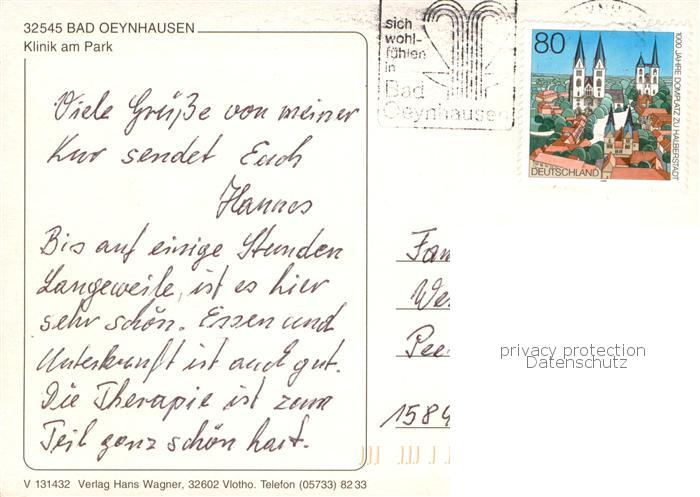 32545 BAD OEYNHAUSEN
Klinik am Park
Viele Grüße von meiner
Kur sendet Euch
Hannes
Bis auf einige Stunden
Langeweile, ist es hier
sehr schön. Essen und
Unterkunft ist auch gut.
Die Therapie ist zum
Teil ganz schön hart.
V 131432 Verlag Hans Wagner, 32602 Vlotho. Telefon (05733) 82 33
sich
wohl-
fühlen
in
Bad
Oeynhausen
80
1000 JAHRE DOMPLATZ ZU HALBERSTADT
DEUTSCHLAND
Fam
We
Pee
1584
privacy protection
Datenschutz